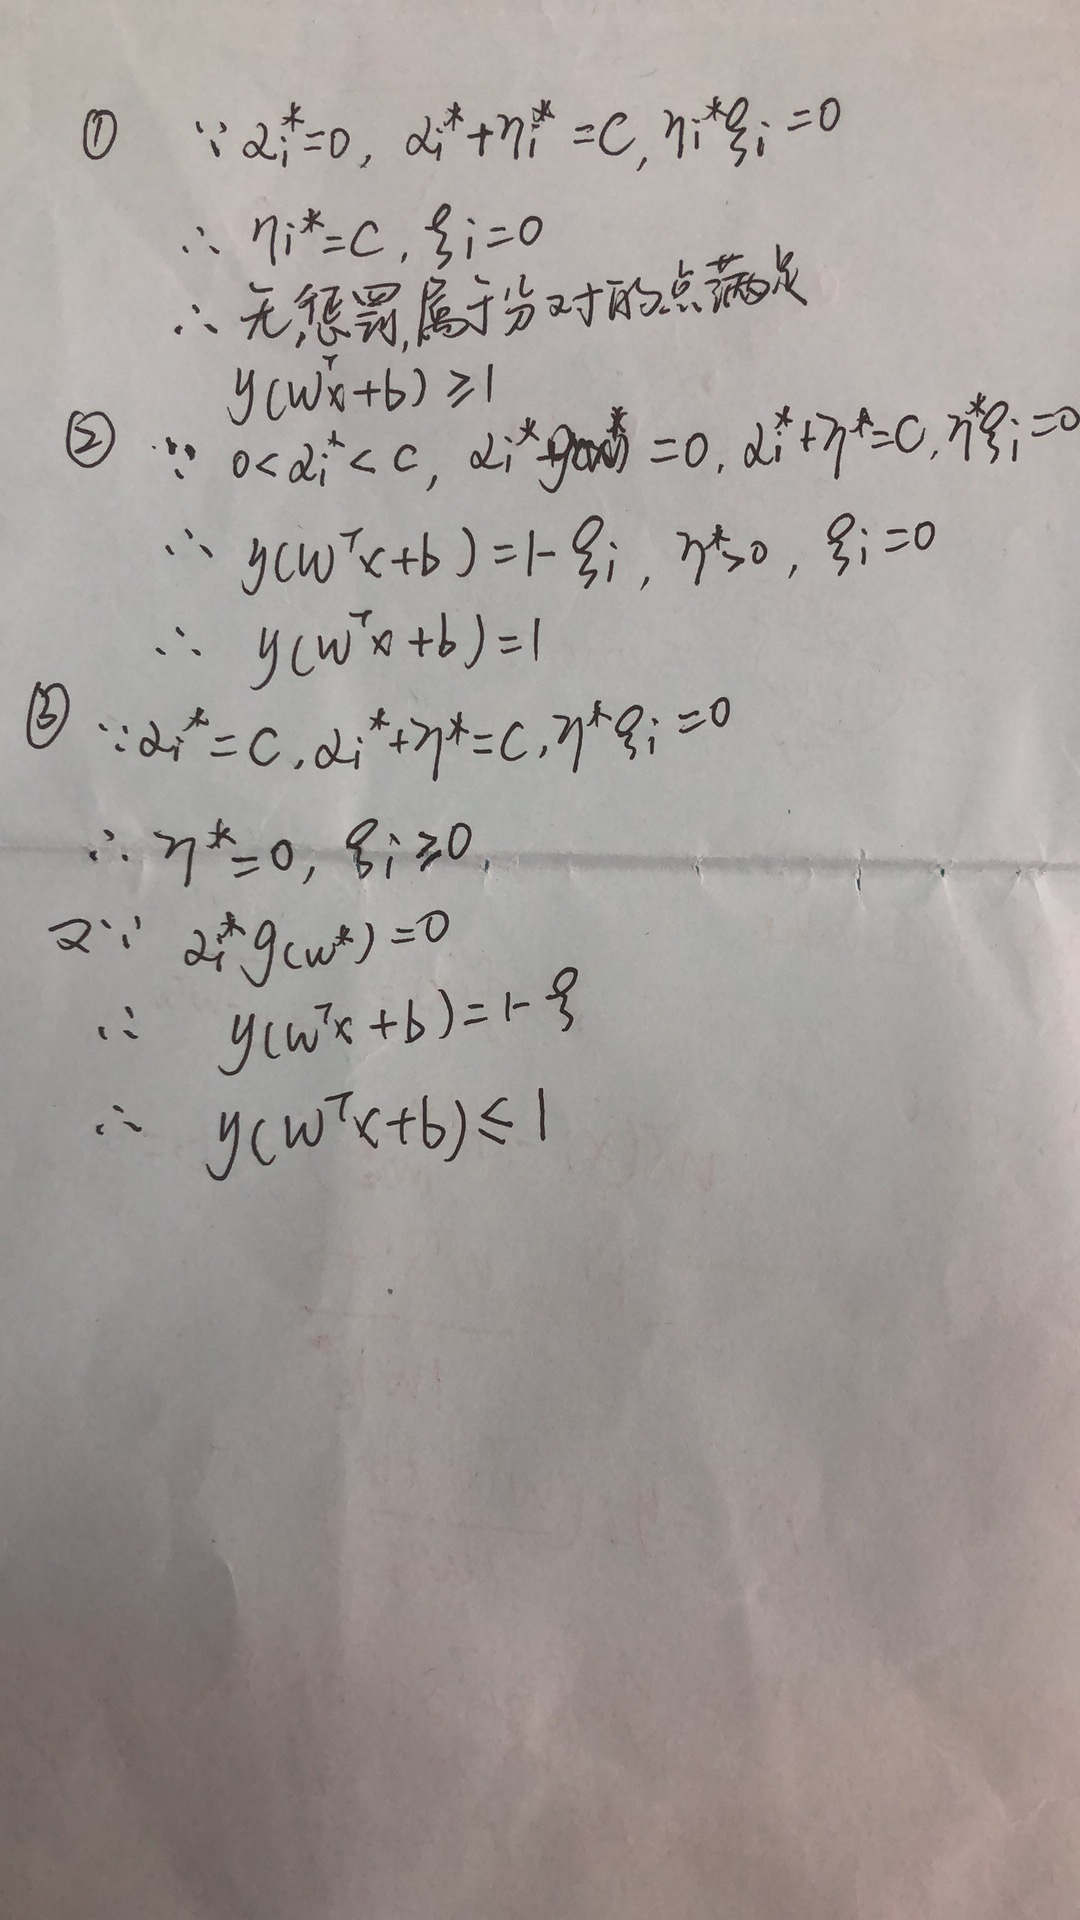 ① ∵ αi*=0, αi*+ηi*=C, ηi*ξi=0
∴ ηi*=C, ξi=0
∴ 无惩罚,属于分对的点满足
y(wᵀx+b)≥1
② ∵ 0<αi*<C, αi*g(w*)=0, αi*+η*=C, η*ξi=0
∴ y(wᵀx+b)=1-ξi, η*>0, ξi=0
∴ y(wᵀx+b)=1
③ ∵αi*=C, αi*+η*=C, η*ξi=0
∴ η*=0, ξi≥0,
又∵ αi*g(w*)=0
∴ y(wᵀx+b)=1-ξ
∴ y(wᵀx+b)≤1